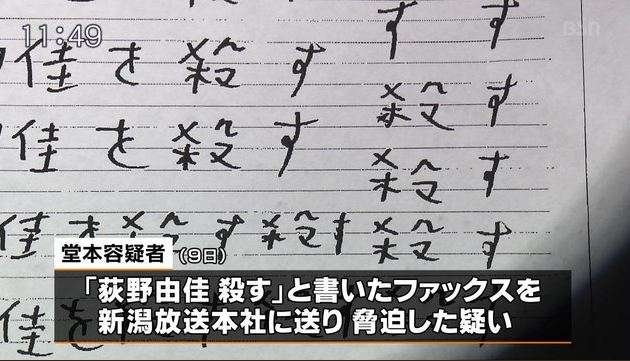 11:49
BSN
す す
佳を殺す
殺す
佳を殺す
殺す
佳を殺す殺す殺す
堂本容疑者 (9日)
「荻野由佳 殺す」と書いたファックスを
新潟放送本社に送り 脅迫した疑い
佳